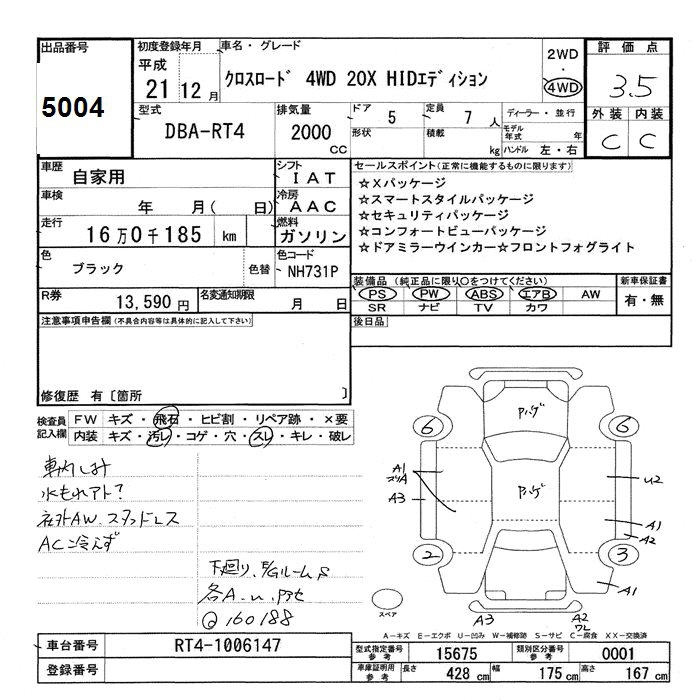 出品番号
5004
初度登録年月
平成
21 12 月
車名・グレード
クロスロード 4WD 20X HIDエディション
2WD
・
4WD
評価点
3.5
外装 内装
C C
型式
DBA-RT4
排気量
2000
CC
ドア 5
形状
定員 7 人
積載 kg
ディーラー・並行
モデル年式 年
ハンドル 左・右
車歴
自家用
シフト
IAT
車検
年 月( 日)
冷房
AAC
走行
16万0千185 km
燃料
ガソリン
色
ブラック
色替
色コード
NH731P
R券
13,590 円
名変通知期限
月 日
セールスポイント(正常に機能するものに限ります)
☆Xパッケージ
☆スマートスタイルパッケージ
☆セキュリティパッケージ
☆コンフォートビューパッケージ
☆ドアミラーウインカー☆フロントフォグライト
装備品 (純正品に限り○をつけてください)
PS PW ABS エアB AW
SR ナビ TV カワ
新車保証書
有・無
後日品
注意事項申告欄(不具合内容等は具体的に記入して下さい)
修復歴 有〔箇所 〕
検査員
記入欄
FW キズ・飛石・ヒビ割・リペア跡・×要
内装 キズ・汚レ・コゲ・穴・スレ・キレ・破レ
車内しみ
水もれアト?
社外AW.スタッドレス
AC冷えず
下廻り、E/Gルームサ
各A-u.
Q160188
6 6
2 3
A1
A3
U2
A1
A2
A1
A3
A2
スペア
A-キズ E-エクボ U-凹み W-補修跡 S-サビ C-腐食 XX-交換済
車台番号
RT4-1006147
登録番号
型式指定番号
参考
15675
類別区分番号
参考
0001
車庫証明用
参考
長さ 428 cm 幅 175 cm 高さ 167 cm